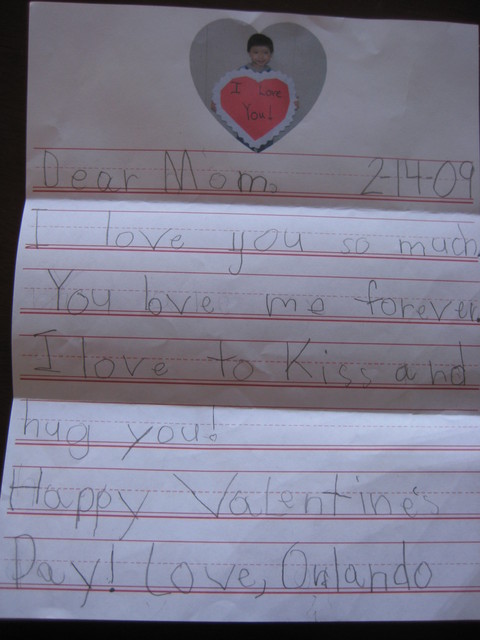 I Love
You!
Dear Mom, 2-14-09
I love you so much.
You love me forever.
I love to Kiss and
hug you!
Happy Valentine's
Day! Love, Orlando